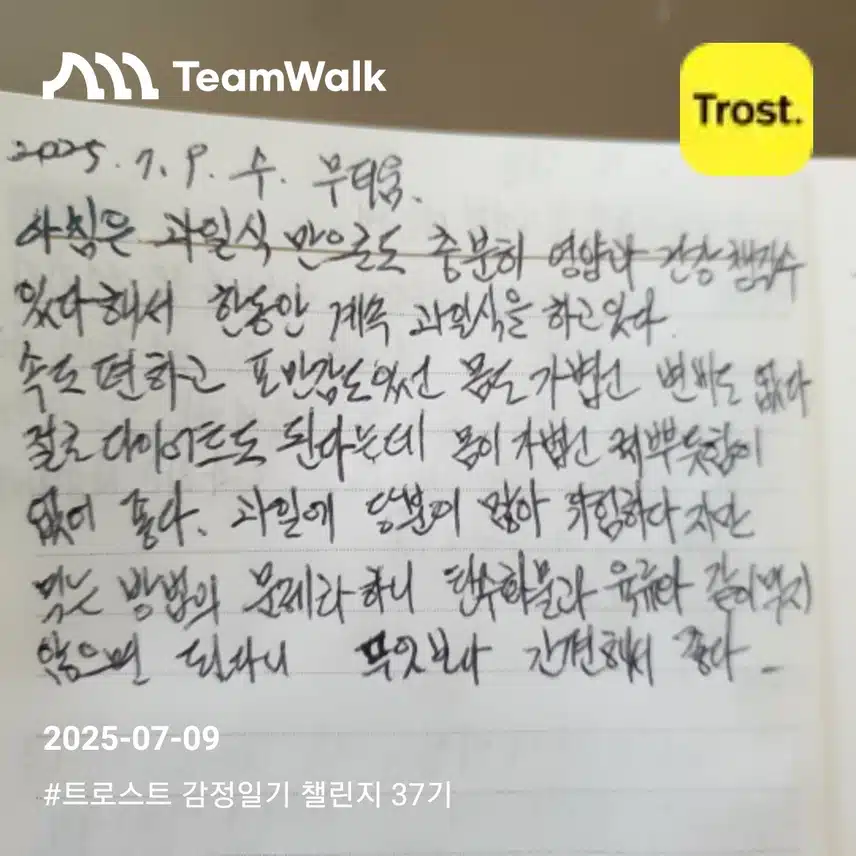 TeamWalk
Trost.
2025. 7. 9. 수. 무더움.
아침은 과일식 만으로도 충분히 영양과 건강 챙길수
있다해서 한동안 계속 과일식을 하고있다.
속도 편하고 포만감도있선 몸도 가볍고 변비도 없다
절로 다이어트도 된다는데 몸이 가볍고 찌뿌듯함이
없어 좋다. 과일에 당분이 많아 위험하다지만
먹는 방법의 문제라하니 탄수화물과 육류와 같이먹지
않으면 된다니 무엇보다 간편해서 좋다_
2025-07-09
#트로스트 감정일기 챌린지 37기